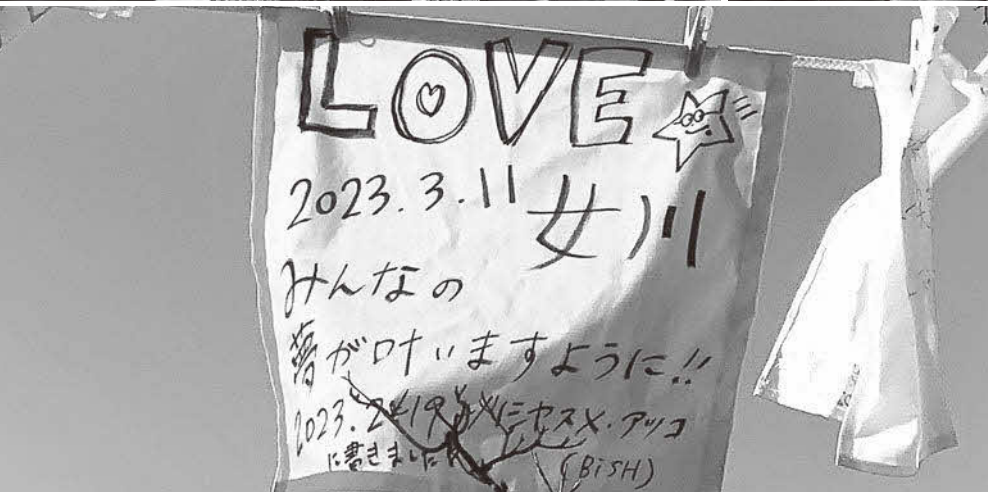 LOVE
2023.3.11 女川
みんなの
夢が叶いますように!!
2023.2.19 セスメ・アツコ
に書きました (BiSH)